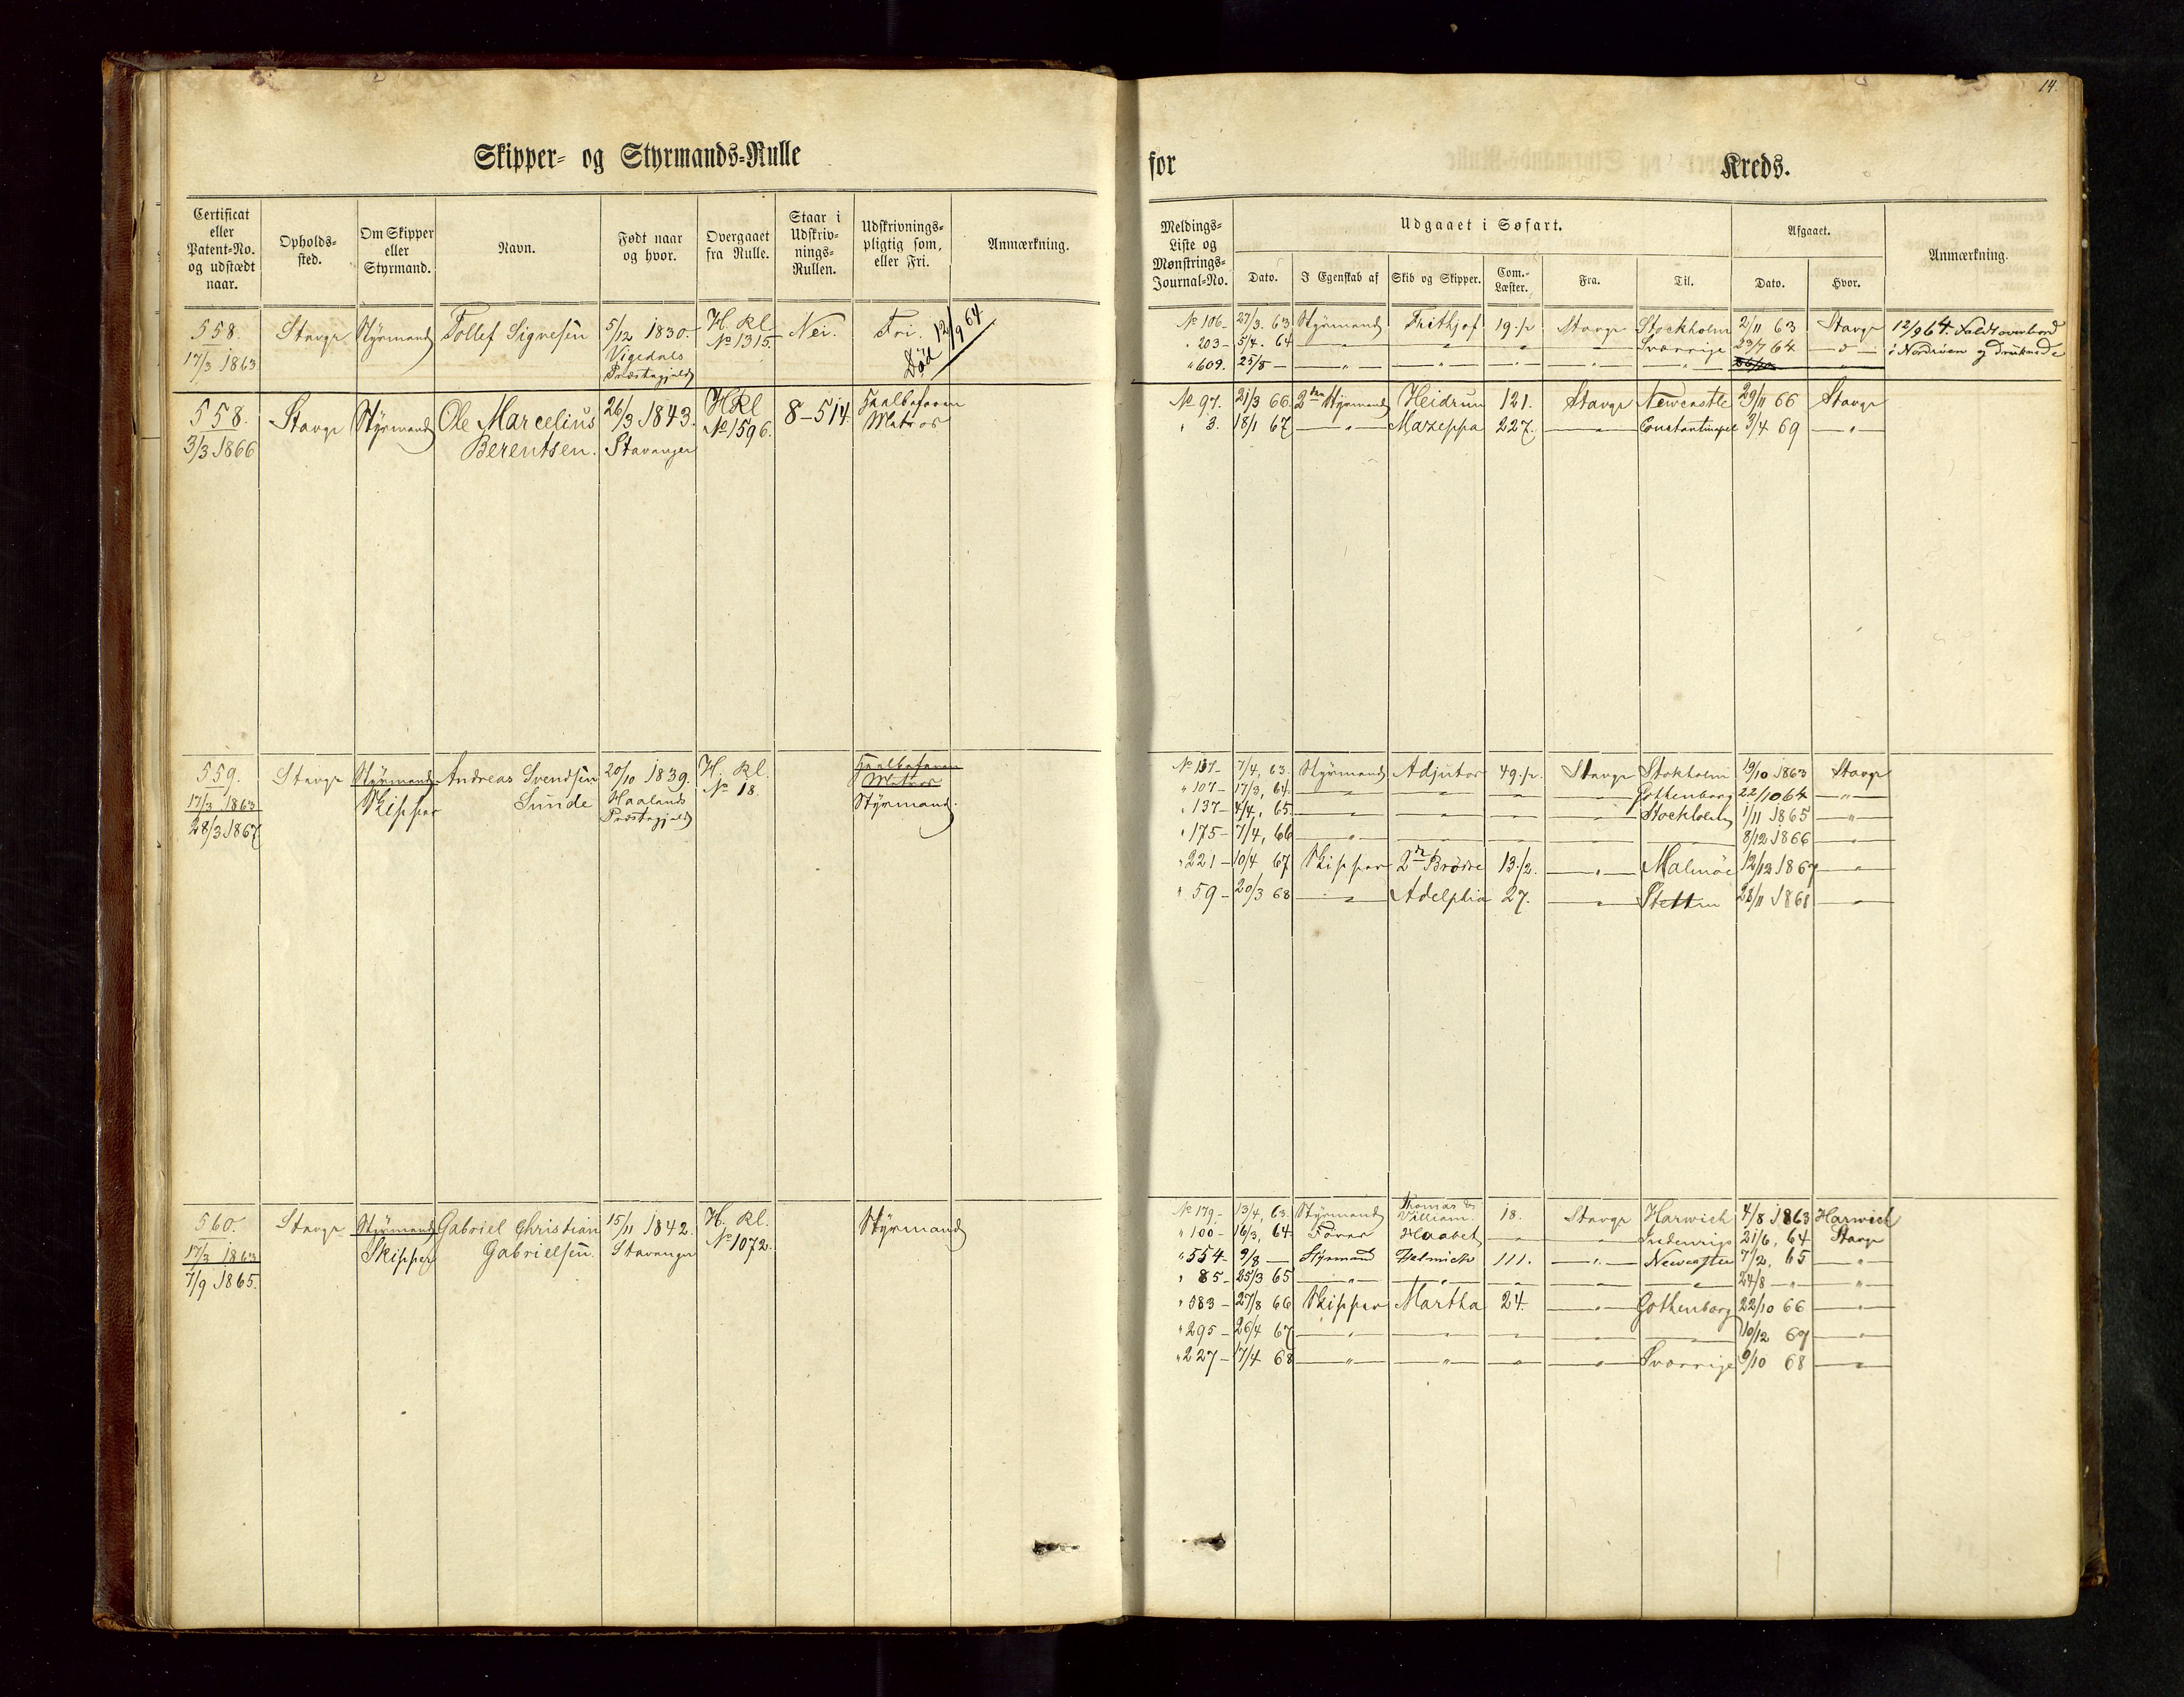 14.
Skipper- og Styrmands-Rulle
for Kreds.
Certificat eller Patent-No. og udstædt naar.
Opholds-sted.
Om Skipper eller Styrmand.
Navn.
Født naar og hvor.
Overgaaet fra Rulle.
Staar i Udskriv-nings-Rullen.
Udskrivnings-pligtig som, eller Fri.
Anmærkning.
Meldings-Liste og Mønstrings-Journal-No.
Udgaaet i Søfart.
Dato.
I Egenskab af
Skib og Skipper.
Com.-Læster.
Fra.
Til.
Afgaaet.
Dato.
Hvor.
Anmærkning.
558. Stavgr Styrmand Tollef Signesen 5/12 1830. H. Kl. Nei. Fri. Død 12/9 64
17/3 1863 Vigedals No 1315
Præstegjeld
No 106 - 27/3. 63 Styrmand Frithjof 19 1/2 Stavgr Stockholm 2/11 63 Stavgr 12/9 64. Faldt overbord
" 203 - 5/4. 64 — " — " " — " — Sverrige 23/7 64 — " — i Nordsøen og druknede
" 609. 25/8 — — " — " " — " — "
558. Stavgr Styrmand Ole Marcelius 26/3 1843. HKl 8-514. Matros
3/3 1866 Berentsen. Stavanger No 1596.
No 97. 21/3 66 2den Styrmand Heidrun 121. Stavgr Newcastle 29/11 66 Stavgr
" 3. 18/1 67 — " — Mazeppa 227. — " — Constantinopel 3/4 69 — " —
559. Stavgr Styrmand Andreas Svendsen 20/10 1839. H. Kl.
17/3 1863 Skipper Sunde Haalands No 18. Matros
28/3 1867 Præstegjeld Styrmand.
No 137 - 7/4, 63. Styrmand Adjutor 49 1/2. Stavgr Stokholm 19/10 1863 Stavgr
" 107 - 17/3, 64. — " — " — " — Gothenborg 22/10 64 — " —
" 137 - 4/4, 65 — " — " — " — Stockholm 1/11 1865 — " —
" 175 - 7/4, 66 — " — " — " — 8/12 1866 — " —
" 221 - 10/4 67 Skipper 2de Brødre 13 1/2. — " — Malmöe 12/12 1867 — " —
" 59 - 20/3 68 — " — Adelphia 27. — " — Stettin 28/11 1868 — " —
560. Stavgr Styrmand Gabriel Christian 15/11 1842. H. Kl. Styrmand
17/3 1863 Skipper Gabrielsen. Stavanger No 1072.
7/9 1865.
No 179. - 13/4, 63. Styrmand Thomas & William. 18. Stavgr Harwich 4/8 1863 Harwich
" 100 - 16/3, 64 Fører Haabet — " — 21/6, 64 Stavgr
" 554 - 9/8 — Styrmand 111. — " — Newcastle 7/2, 65 — " —
" 85 - 25/3 65 — " — " — " — " 24/8 — " — "
" 583 - 27/8 66 Skipper Martha 24. — " — Gothenborg 22/10 66 — " —
" 295 - 26/4 67 — " — " — " — " — 10/12 67 — " —
" 227 - 17/4 68 — " — " — " — Sverrige 9/10 68 — " —